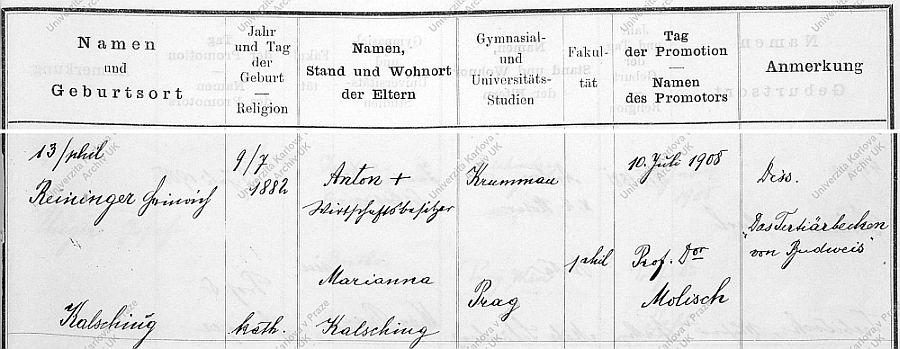 Namen
und
Geburtsort
Jahr
und Tag
der
Geburt
Religion
Namen,
Stand und Wohnort
der Eltern
Gymnasial-
und
Universitäts-
Studien
Fakul-
tät
Tag
der Promotion
Namen
des Promotors
Anmerkung
13/phil
Reininger Heinrich
Kalsching
9/7
1882
kath.
Anton +
Wirtschaftsbesitzer
Marianna
Kalsching
Krummau
Prag
phil
10. Juli 1908
Prof. Dor
Molisch
Diss.
"Das Tertiärbecken
von Budweis"